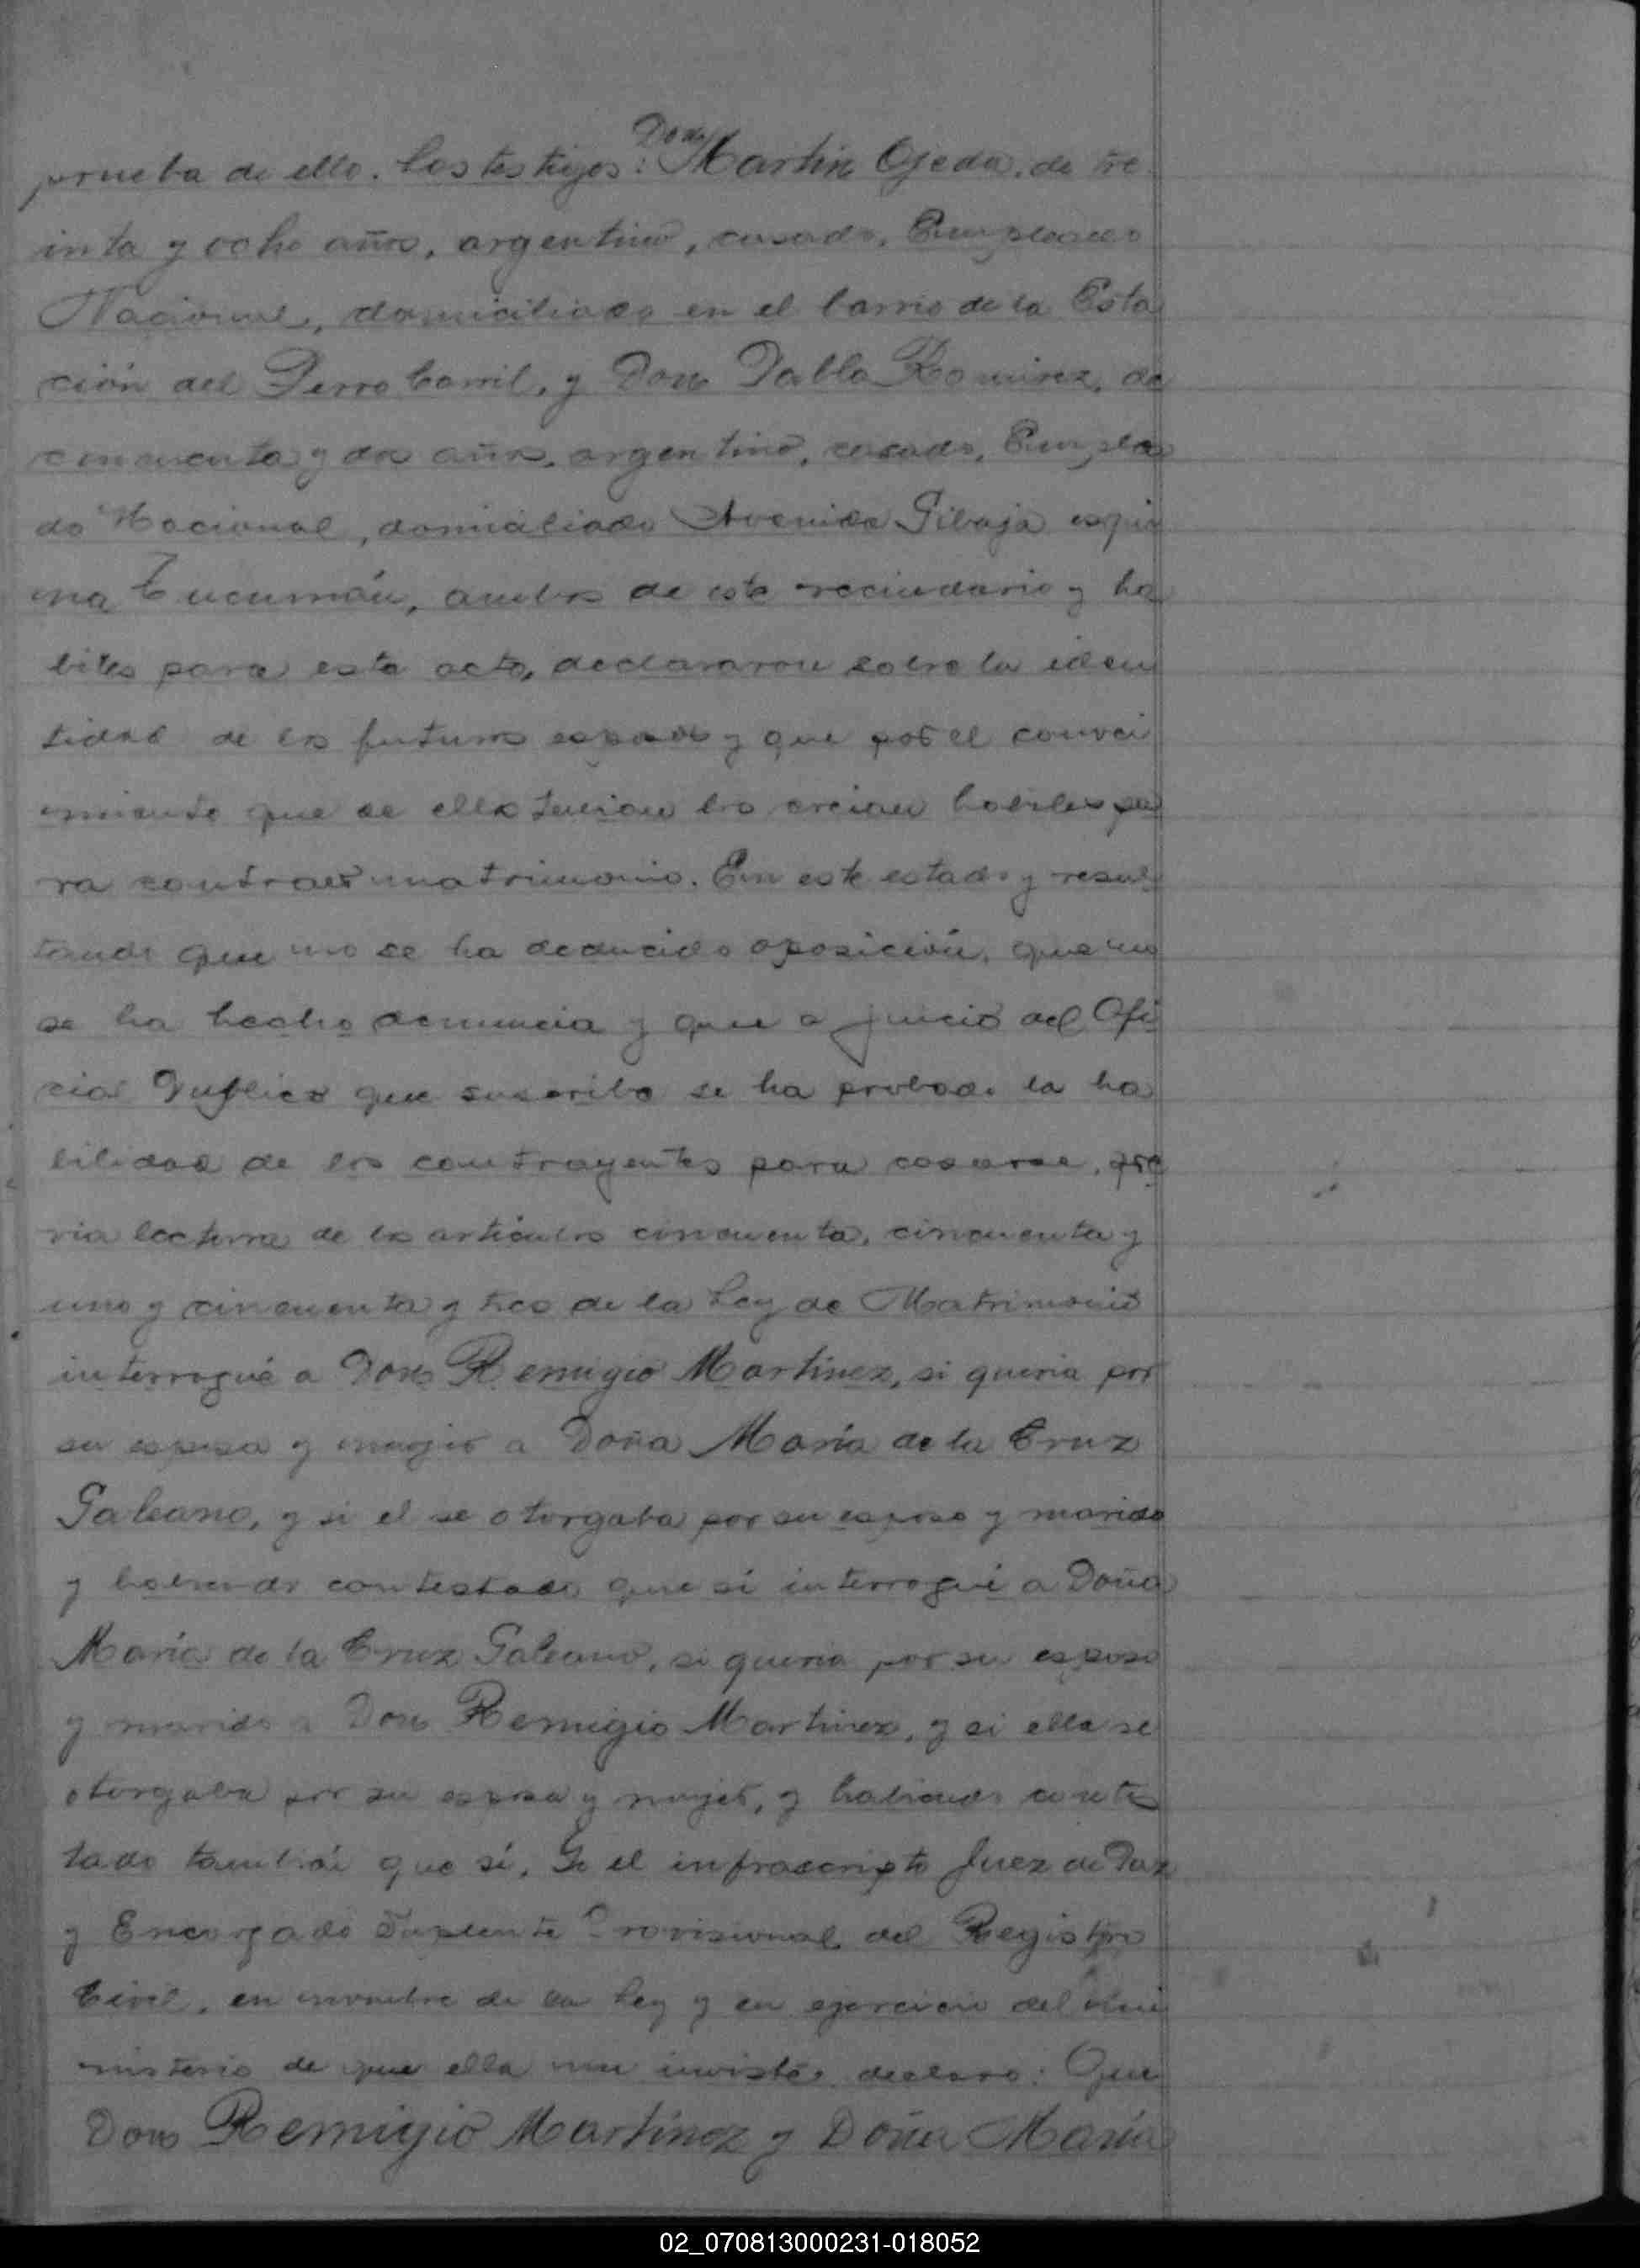 Don
prueba de ello. Los testigos: Martin Ojeda, de tre
inta y ocho años, argentino, casado, Empleado
Nacional, domiciliado en el barrio de la Esta
ción del Ferro Carril, y Don Pablo Romirez, de
cincuenta y dos años, argentino, casado, Emplea
do Nacional, domiciliado Avenida Gibaja esqui
na Tucumán, ambos de este vecindario y ha
biles para este acto, declararon sobre la iden
tidad de los futuros esposos y que por el conoci
miento que de ellos tenian los creian habiles pa
ra contraer matrimonio. En este estado y resul
tando que no se ha deducido oposición, que no
se ha hecho denuncia y que a juicio del Ofi
cial Publico que suscribe se ha probado la ha
bilidad de los contrayentes para casarse, pre
via lectura de los artículos cincuenta, cincuenta y
uno y cincuenta y tres de la Ley de Matrimonio
interrogué a Don Remigio Martinez, si queria por
su esposa y mujer a Doña María de la Cruz
Galeano, y si el se otorgaba por su esposo y marido
y habiendo contestado que si interrogué a Doña
María de la Cruz Galeano, si queria por su esposo
y marido a Don Remigio Martinez, y si ella se
otorgaba por su esposa y mujer, y habiendo contes
tado también que sí, Yo el infrascripto Juez de Paz
y Encargado Suplente Provisional del Registro
Civil, en nombre de la Ley y en ejercicio del mi
nisterio de que ella me inviste, declaro: Que
Don Remigio Martínez y Doña María